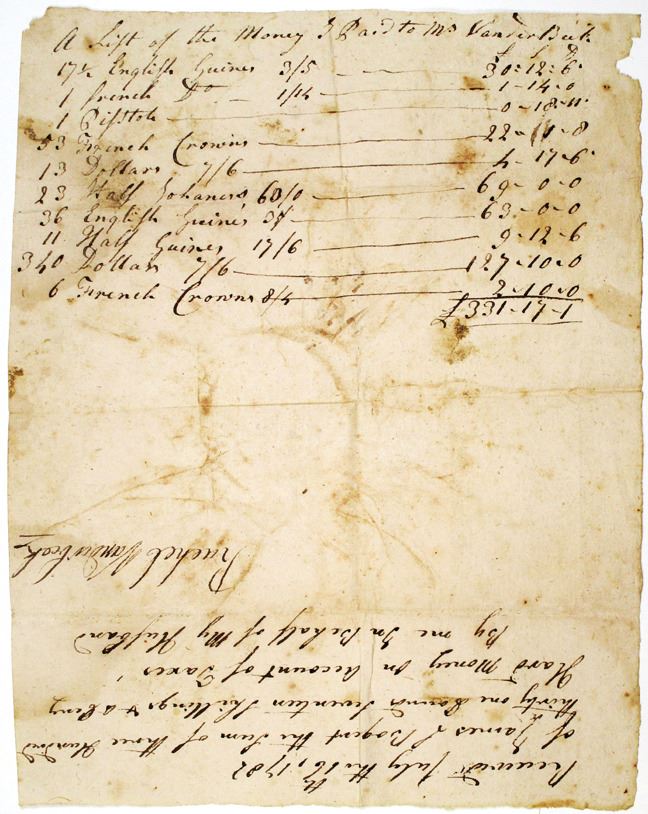 A List of the Money I Paid to Mr VanderBeek
£ S D
17½ English Guines 3/5 — 30=12=6
1 French Do — 1/14 — 1-14-0
1 Pistole — 0-18-11
53 French Crowns — 22-1-8
13 Dollars 7/6 — 4-17-6
23 Half Johanes 60/0 — 69-0-0
36 English Guines — 63-0-0
11 Half Guines 17/6 — 9-12-6
340 Dollars 7/6 — 127-10-0
6 French Crowns 8/4 — 2-10-0
£331-17-1
Received July the 16th, 1782
of James Bogert the Sum of three Hundred
thirty one Pounds Seventeen Shillings & a Peny
Hard Money on Account of Taxes
By me In Behalf of My Husband
Rachel Vanderbeek